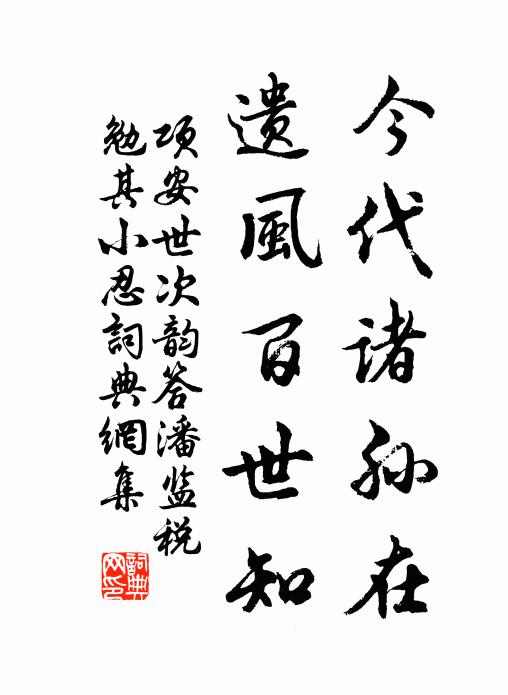 今代诸孙在
遗風百世知
项安世次韵答潘监税
勉其小忍詞典網集
詞典網印